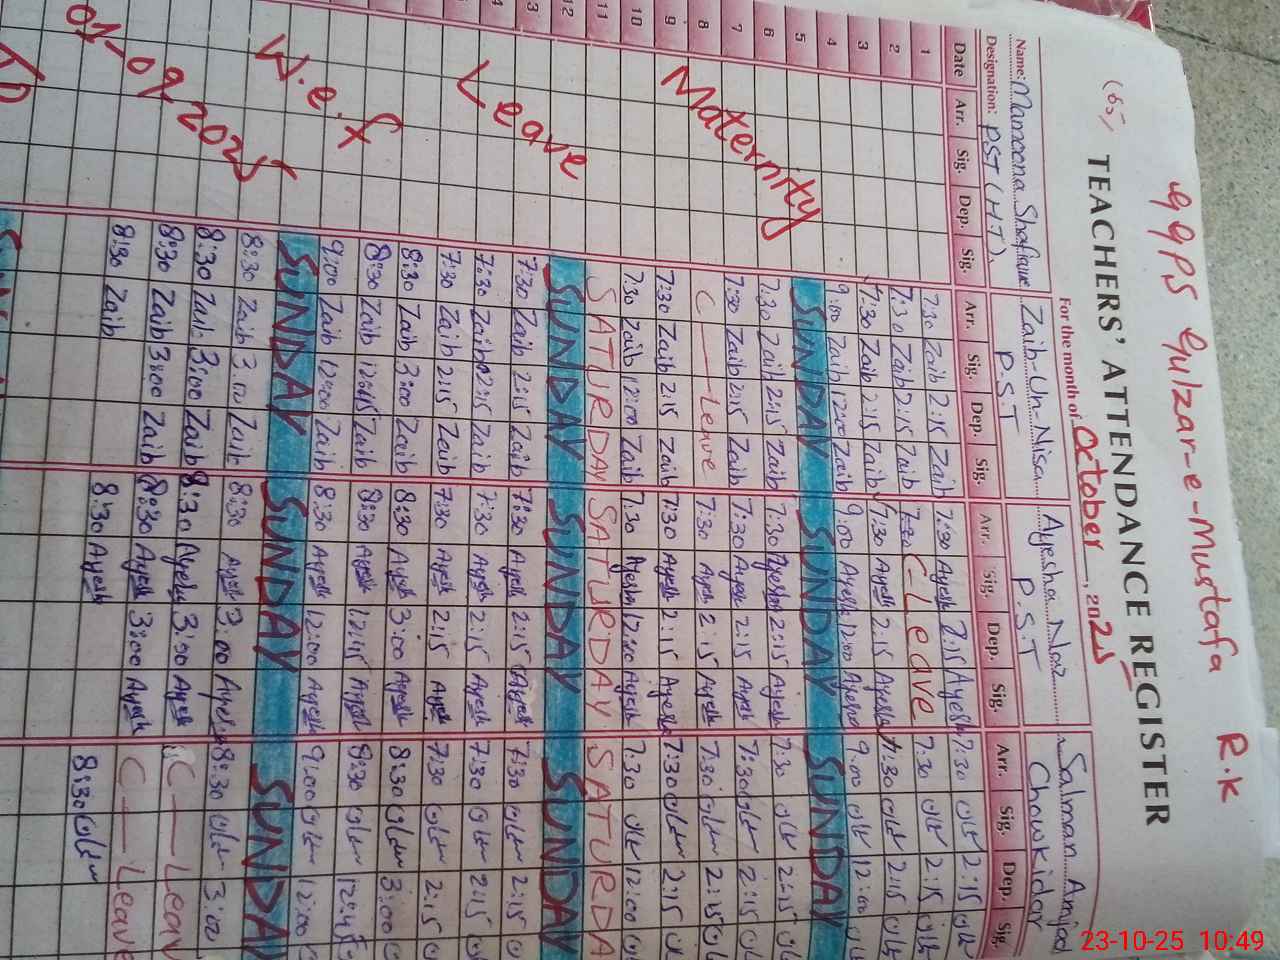 GGPS Gulzar-e-Mustafa R.K
(65)
TEACHERS' ATTENDANCE REGISTER
For the month of October, 2025
Name: Mamoona Zaib-Un-Nisa Ayesha Naz Salman Amjad
Designation: PST (H.T) P.S.T P.S.T Chowkidar
Date Arr. Sig. Dep. Sig. Arr. Sig. Dep. Sig. Arr. Sig. Dep. Sig. Arr. Sig. Dep. Sig.
1 7:30 Zaib 2:15 Zaib 7:30 Ayesh 2:15 Ayesh 7:30 2:15
2 7:30 Zaib 2:15 Zaib 7:30 C-Leave 7:30 2:15
3 7:30 Zaib 2:15 Zaib 7:30 Ayesh 2:15 Ayesh 7:30 2:15
4 9:00 Zaib 12:00 Zaib 9:00 Ayesh 12:00 Ayesh 9:00 12:00
5 SUNDAY SUNDAY SUNDAY
6 7:30 Zaib 2:15 Zaib 7:30 Ayesh 2:15 Ayesh 7:30 2:15
7 Maternity 7:30 Zaib 2:15 Zaib 7:30 Ayesh 2:15 Ayesh 7:30 2:15
8 C Leave 7:30 Ayesh 2:15 Ayesh 7:30 2:15
9 7:30 Zaib 2:15 Zaib 7:30 Ayesh 2:15 Ayesh 7:30 2:15
10 7:30 Zaib 12:00 Zaib 7:30 Ayesh 12:00 Ayesh 7:30 12:00
11 SATURDAY SATURDAY SATURDA
12 SUNDAY SUNDAY SUNDAY
13 Leave 7:30 Zaib 2:15 Zaib 7:30 Ayesh 2:15 Ayesh 7:30 2:15
7:30 Zaib 2:15 Zaib 7:30 Ayesh 2:15 Ayesh 7:30 2:15
7:30 Zaib 2:15 Zaib 7:30 Ayesh 2:15 Ayesh 7:30 2:15
8:30 Zaib 3:00 Zaib 8:30 Ayesh 3:00 Ayesh 8:30 3:00
8:30 Zaib 12:45 Zaib 8:30 Ayesh 12:45 Ayesh 8:30 12:45
W.e.f 9:00 Zaib 12:00 Zaib 8:30 Ayesh 12:00 Ayesh 9:00 12:00
SUNDAY SUNDAY SUNDAY
8:30 Zaib 3:00 Zaib 8:30 Ayesh 3:00 Ayesh 8:30 3:00
01-09-2025 8:30 Zaib 3:00 Zaib 8:30 Ayesh 3:00 Ayesh C Leav
8:30 Zaib 3:00 Zaib 8:30 Ayesh 3:00 Ayesh C Leave
8:30 Zaib 8:30 Ayesh 8:30
TO
23-10-25 10:49